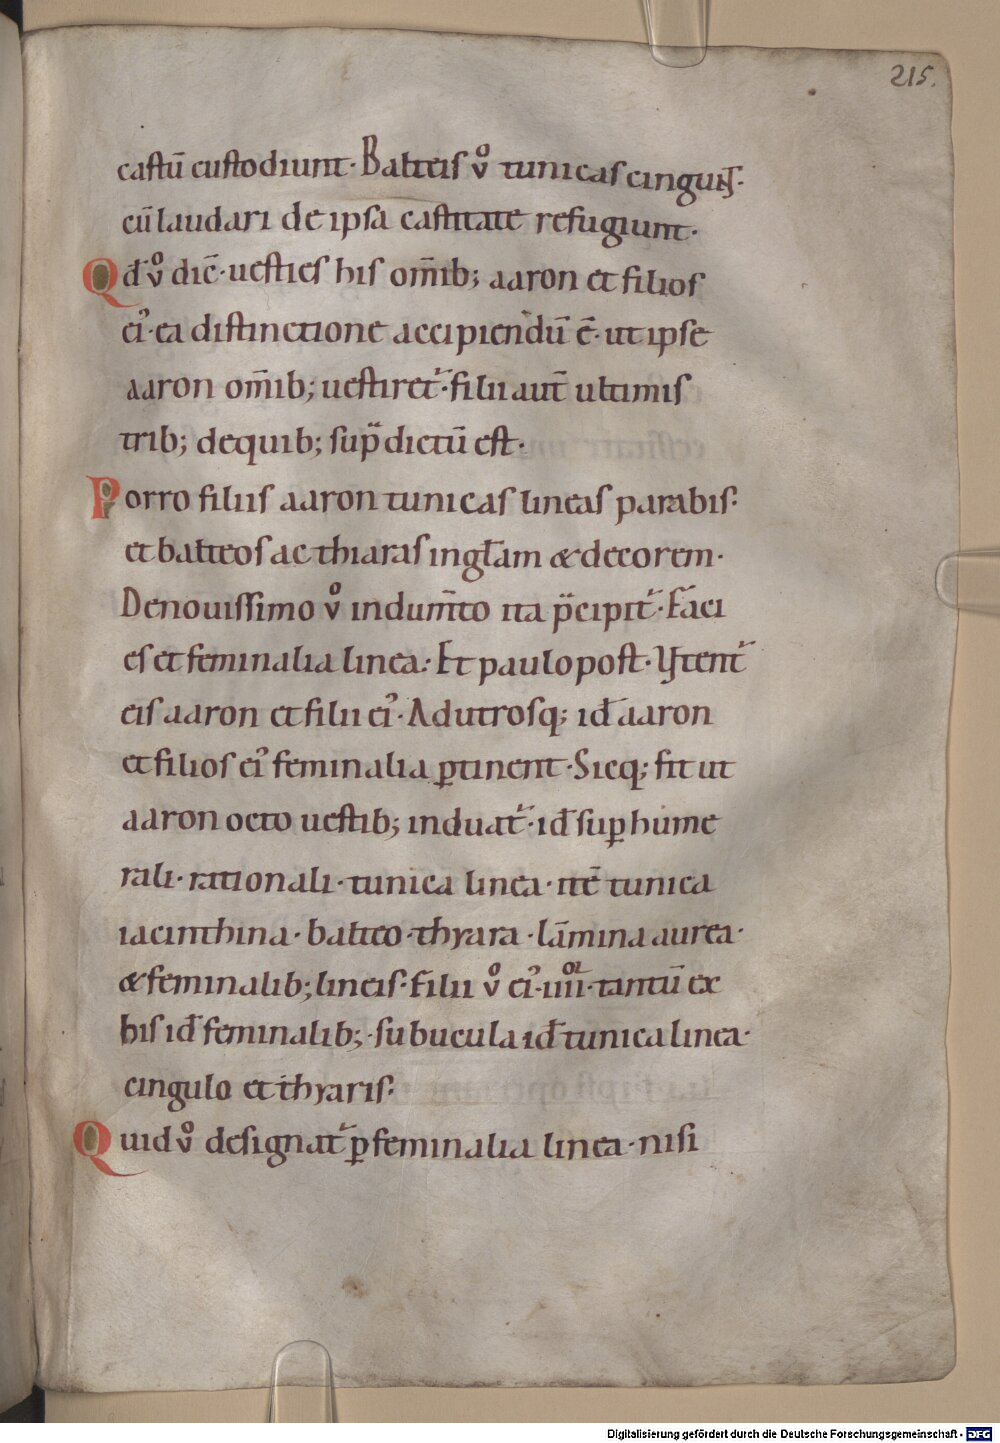 215.
castū custodiunt· Balteis v̊ tunicas cingunt·
cū laudari de ipsa castitate refugiunt·
Qđ v̊ dic̄· uesties his om̄ib; aaron et filios
ei᾿· ea distinctione accipiendū ē· ut ipse
aaron om̄ib; uestiret᷑· filii aut̄ ultimis
trib; de quib; sup̄dictū est·
Porro filiis aaron tunicas lineas parabis·
et balteos ac thiaras in gl̄am & decorem·
De nouissimo v̊ indum̄to ita p̄cipit᷑· Faci
es et feminalia linea· Et paulo post· Vtent᷑
eis aaron et filii ei᾿· Ad utrosq; id̄ aaron
et filios ei᾿ feminalia ꝑtinent· Sicq; fit ut
aaron octo uestib; induat᷑· id̄ suꝑhume
rali· rationali· tunica linea· itē tunica
iacinthina· balteo· thyara· lāmina aurea·
& feminalib; lineis· Filii v̊ ei᾿ ·iiii᷎ᵒʳ· tantū ex
his id̄ feminalib;· subucula id̄ tunica linea·
cingulo et thyaris·
Quid v̊ designat᷑ ꝑ feminalia linea· nisi
Digitalisierung gefördert durch die Deutsche Forschungsgemeinschaft - DFG